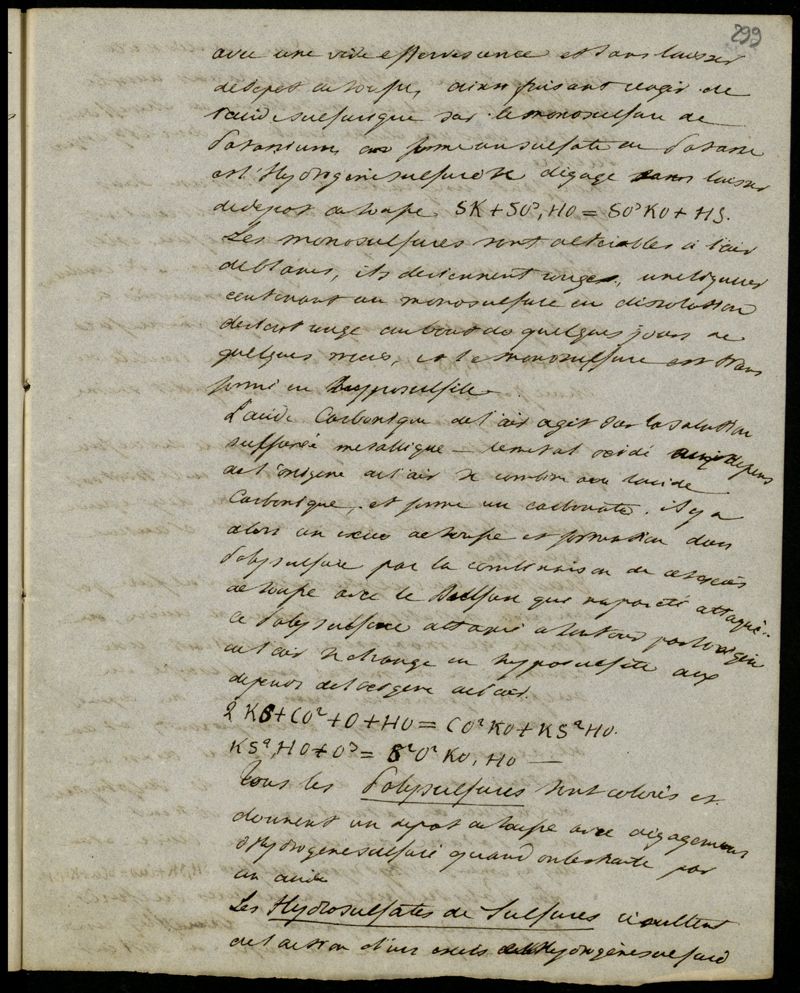 299
avec une vive effervescence et sans laisser
de depot de soufre, ainsi faisant reagir de
l'acide sulfurique sur le monosulfure de
Potassium on forme un sulfate de Potasse
et l'Hydrogène sulfuré se dégage sans laisser
de depot de soufre SK + SO³, HO = SO³ KO + HS.
Les monosulfures sont alterables à l'air
de blancs, ils deviennent rouges, une liqueur
contenant un monosulfure en dissolution
devient rouge au bout de quelques jours ou
quelques mois, et le monosulfure est trans
formé en hyposulfite
L'acide Carbonique de l'air agit sur la solution
sulfurée métallique — le metal oxidé aux depens
de l'oxigene de l'air se combine avec l'acide
Carbonique, et forme un carbonate. il y a
alors un exces de soufre et formation d'un
Polysulfure par la combinaison de cet exces
de soufre avec le Sulfure qui n'a pas été attaqué
ce Polysulfure attaqué à son tour par l'oxigene
de l'air se change en hyposulfite aux
depens de l'oxigene de l'air.
2 KS + CO² + O + HO = CO² KO + KS² HO.
KS², HO + O³ = S²O² KO, HO —
Tous les Polysulfures sont colorés et
donnent un depot de soufre avec degagement
d'Hydrogène sulfuré quand on les traite par
un acide
Les Hydrosulfates de Sulfures résultent
de l'action d'un exces d'Hydrogène sulfuré